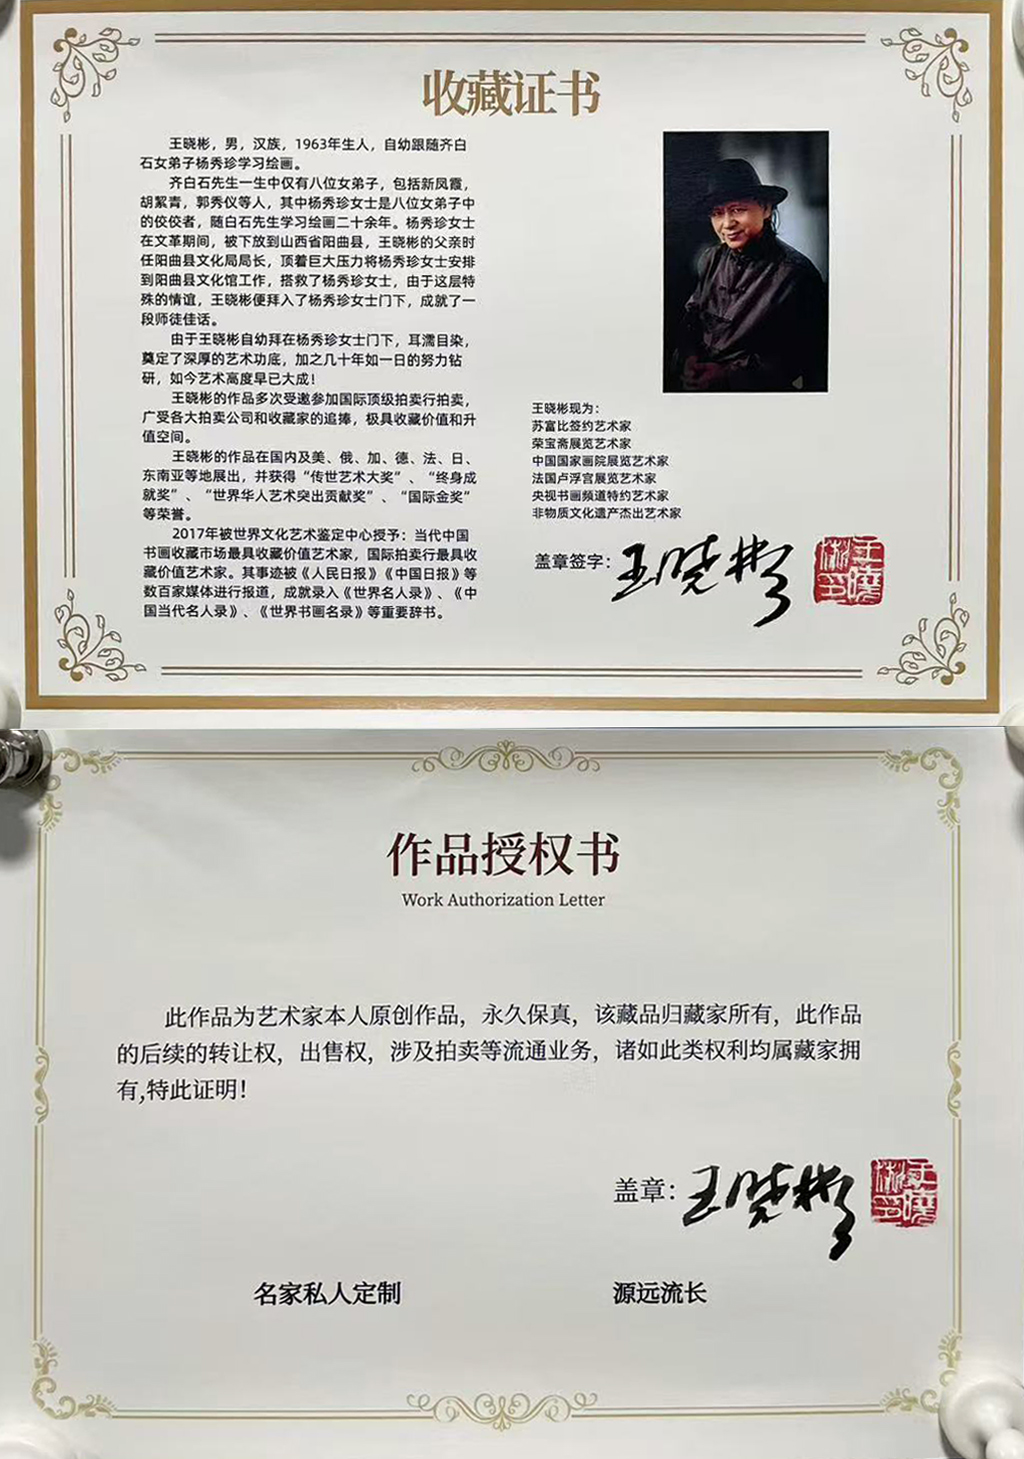 收藏证书
王晓彬，男，汉族，1963年生人，自幼跟随齐白
石女弟子杨秀珍学习绘画。
齐白石先生一生中仅有八位女弟子，包括新凤霞，
胡絜青，郭秀仪等人，其中杨秀珍女士是八位女弟子中
的佼佼者，随白石先生学习绘画二十余年。杨秀珍女士
在文革期间，被下放到山西省阳曲县，王晓彬的父亲时
任阳曲县文化局局长，顶着巨大压力将杨秀珍女士安排
到阳曲县文化馆工作，搭救了杨秀珍女士，由于这层特
殊的情谊，王晓彬便拜入了杨秀珍女士门下，成就了一
段师徒佳话。
由于王晓彬自幼拜在杨秀珍女士门下，耳濡目染，
奠定了深厚的艺术功底，加之几十年如一日的努力钻
研，如今艺术高度早已大成！
王晓彬的作品多次受邀参加国际顶级拍卖行拍卖，
广受各大拍卖公司和收藏家的追捧，极具收藏价值和升
值空间。
王晓彬的作品在国内及美、俄、加、德、法、日、
东南亚等地展出，并获得“传世艺术大奖”、“终身成
就奖”、“世界华人艺术突出贡献奖”、“国际金奖”
等荣誉。
2017年被世界文化艺术鉴定中心授予：当代中国
书画收藏市场最具收藏价值艺术家，国际拍卖行最具收
藏价值艺术家。其事迹被《人民日报》《中国日报》等
数百家媒体进行报道，成就录入《世界名人录》、《中
国当代名人录》、《世界书画名录》等重要辞书。
王晓彬现为：
苏富比签约艺术家
荣宝斋展览艺术家
中国国家画院展览艺术家
法国卢浮宫展览艺术家
央视书画频道特约艺术家
非物质文化遗产杰出艺术家
盖章签字：王晓彬
王曉彬印
作品授权书
Work Authorization Letter
此作品为艺术家本人原创作品，永久保真，该藏品归藏家所有，此作品
的后续的转让权，出售权，涉及拍卖等流通业务，诸如此类权利均属藏家拥
有,特此证明！
盖章：王晓彬
王曉彬印
名家私人定制 源远流长